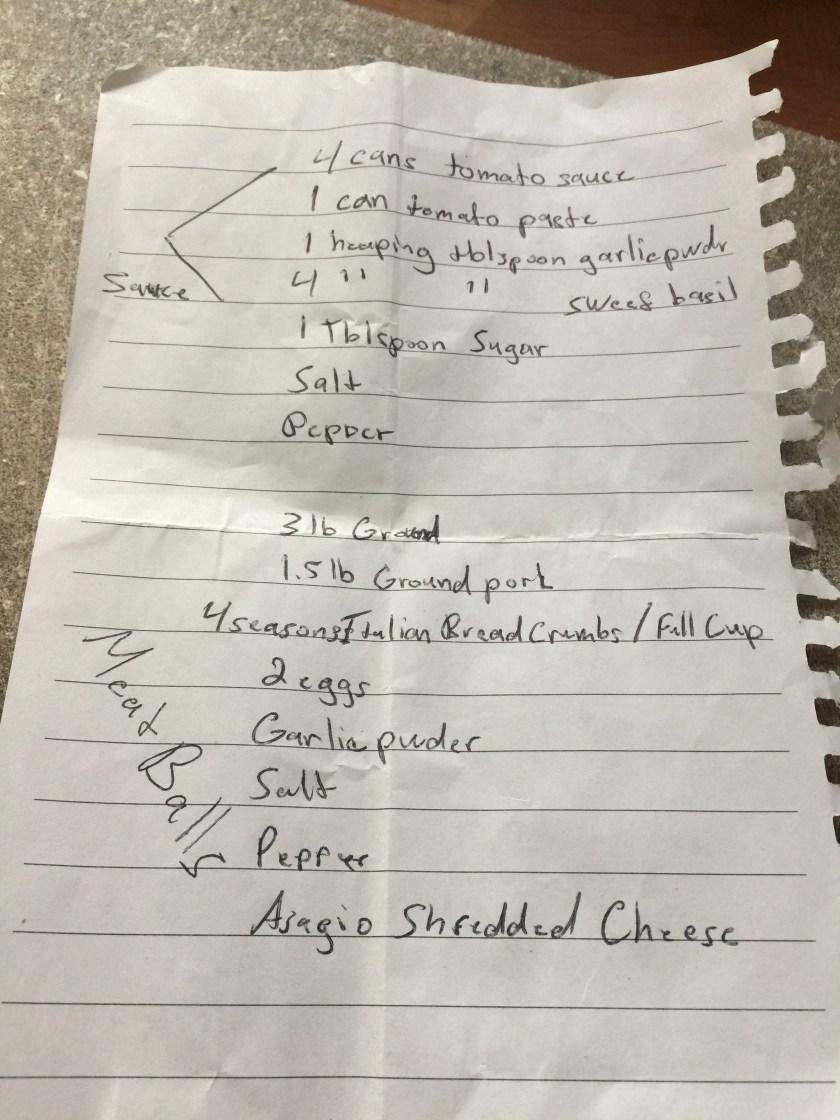 4 cans tomato sauce
1 can tomato paste
1 heaping tblspoon garlic pwdr
Sauce 4 " " sweet basil
1 Tblspoon Sugar
Salt
Pepper
3 lb Ground
1.5 lb Ground pork
4 seasons Italian Bread Crumbs / Full Cup
2 eggs
Garlic pwder
Salt
Pepper
Asagio Shredded Cheese
Meat Balls